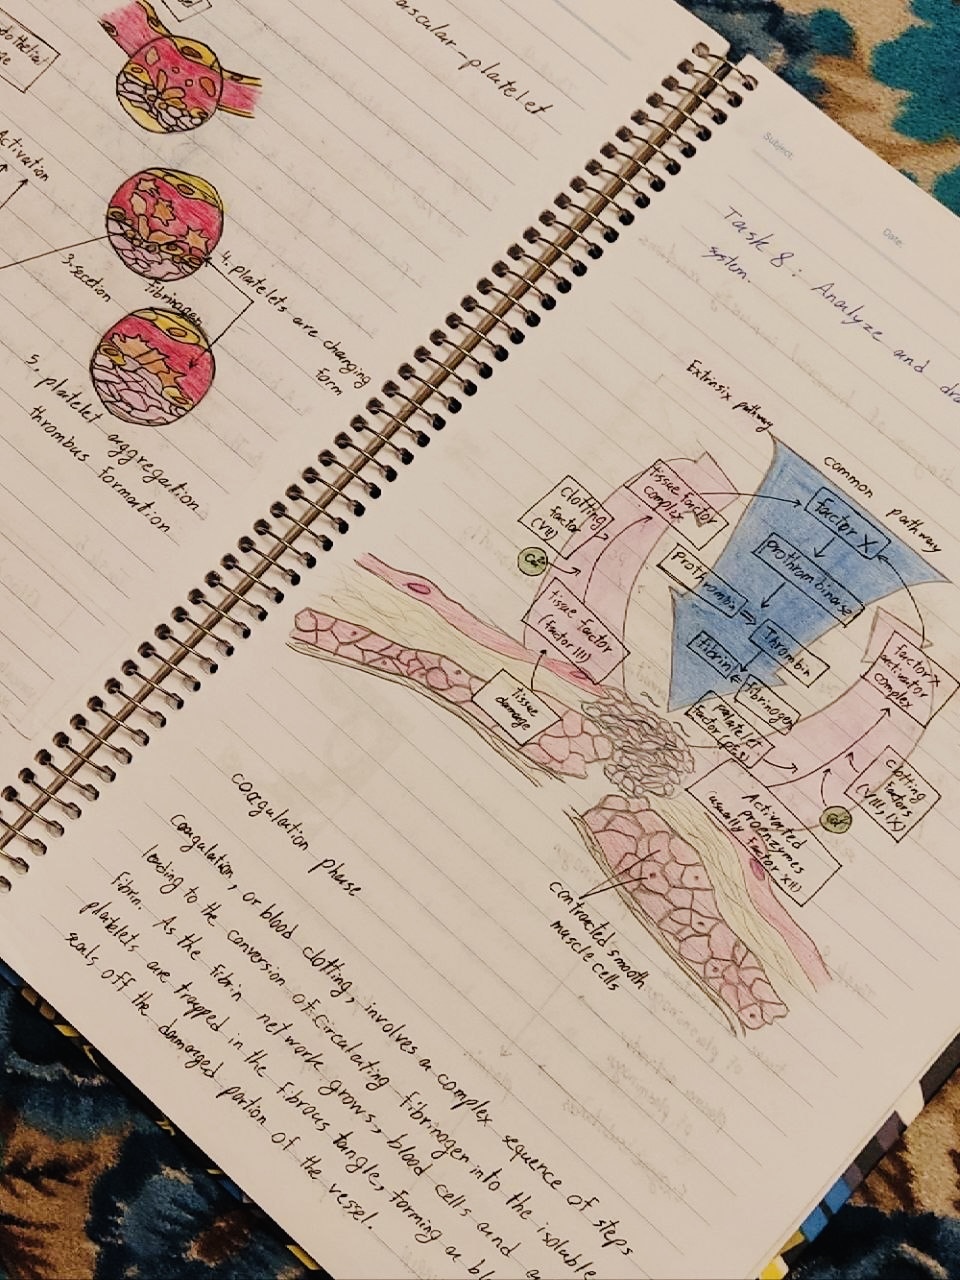 ascular-platelet
Activation
3. secretion
fibrinogen
4. platelets are changing
form
5. platelet aggregation
thrombus formation
Subject:
Date:
Task 8: Analyze and
system.
Extrasix pathway
common pathway
Clotting
factor
(VII)
Ca²⁺
tissue factor
complex
tissue factor
(factor III)
tissue
damage
Factor X
prothrombinase
prothrombin
Thrombin
Fibrin
fibrinogen
palatelet
factor
factor X
activator
complex
clotting
factors
(VIII, IX)
Activated
proenzymes
(usually factor XII)
contracted smooth
muscle cells
coagulation phase
coagulation, or blood clotting, involves a complex sequence of steps
leading to the conversion of circulating fibrinogen into the isoluble
fibrin. As the fibrin network grows, blood cells and
platelets are trapped in the fibrous tangle, forming a
seals off the damaged portion of the vessel.